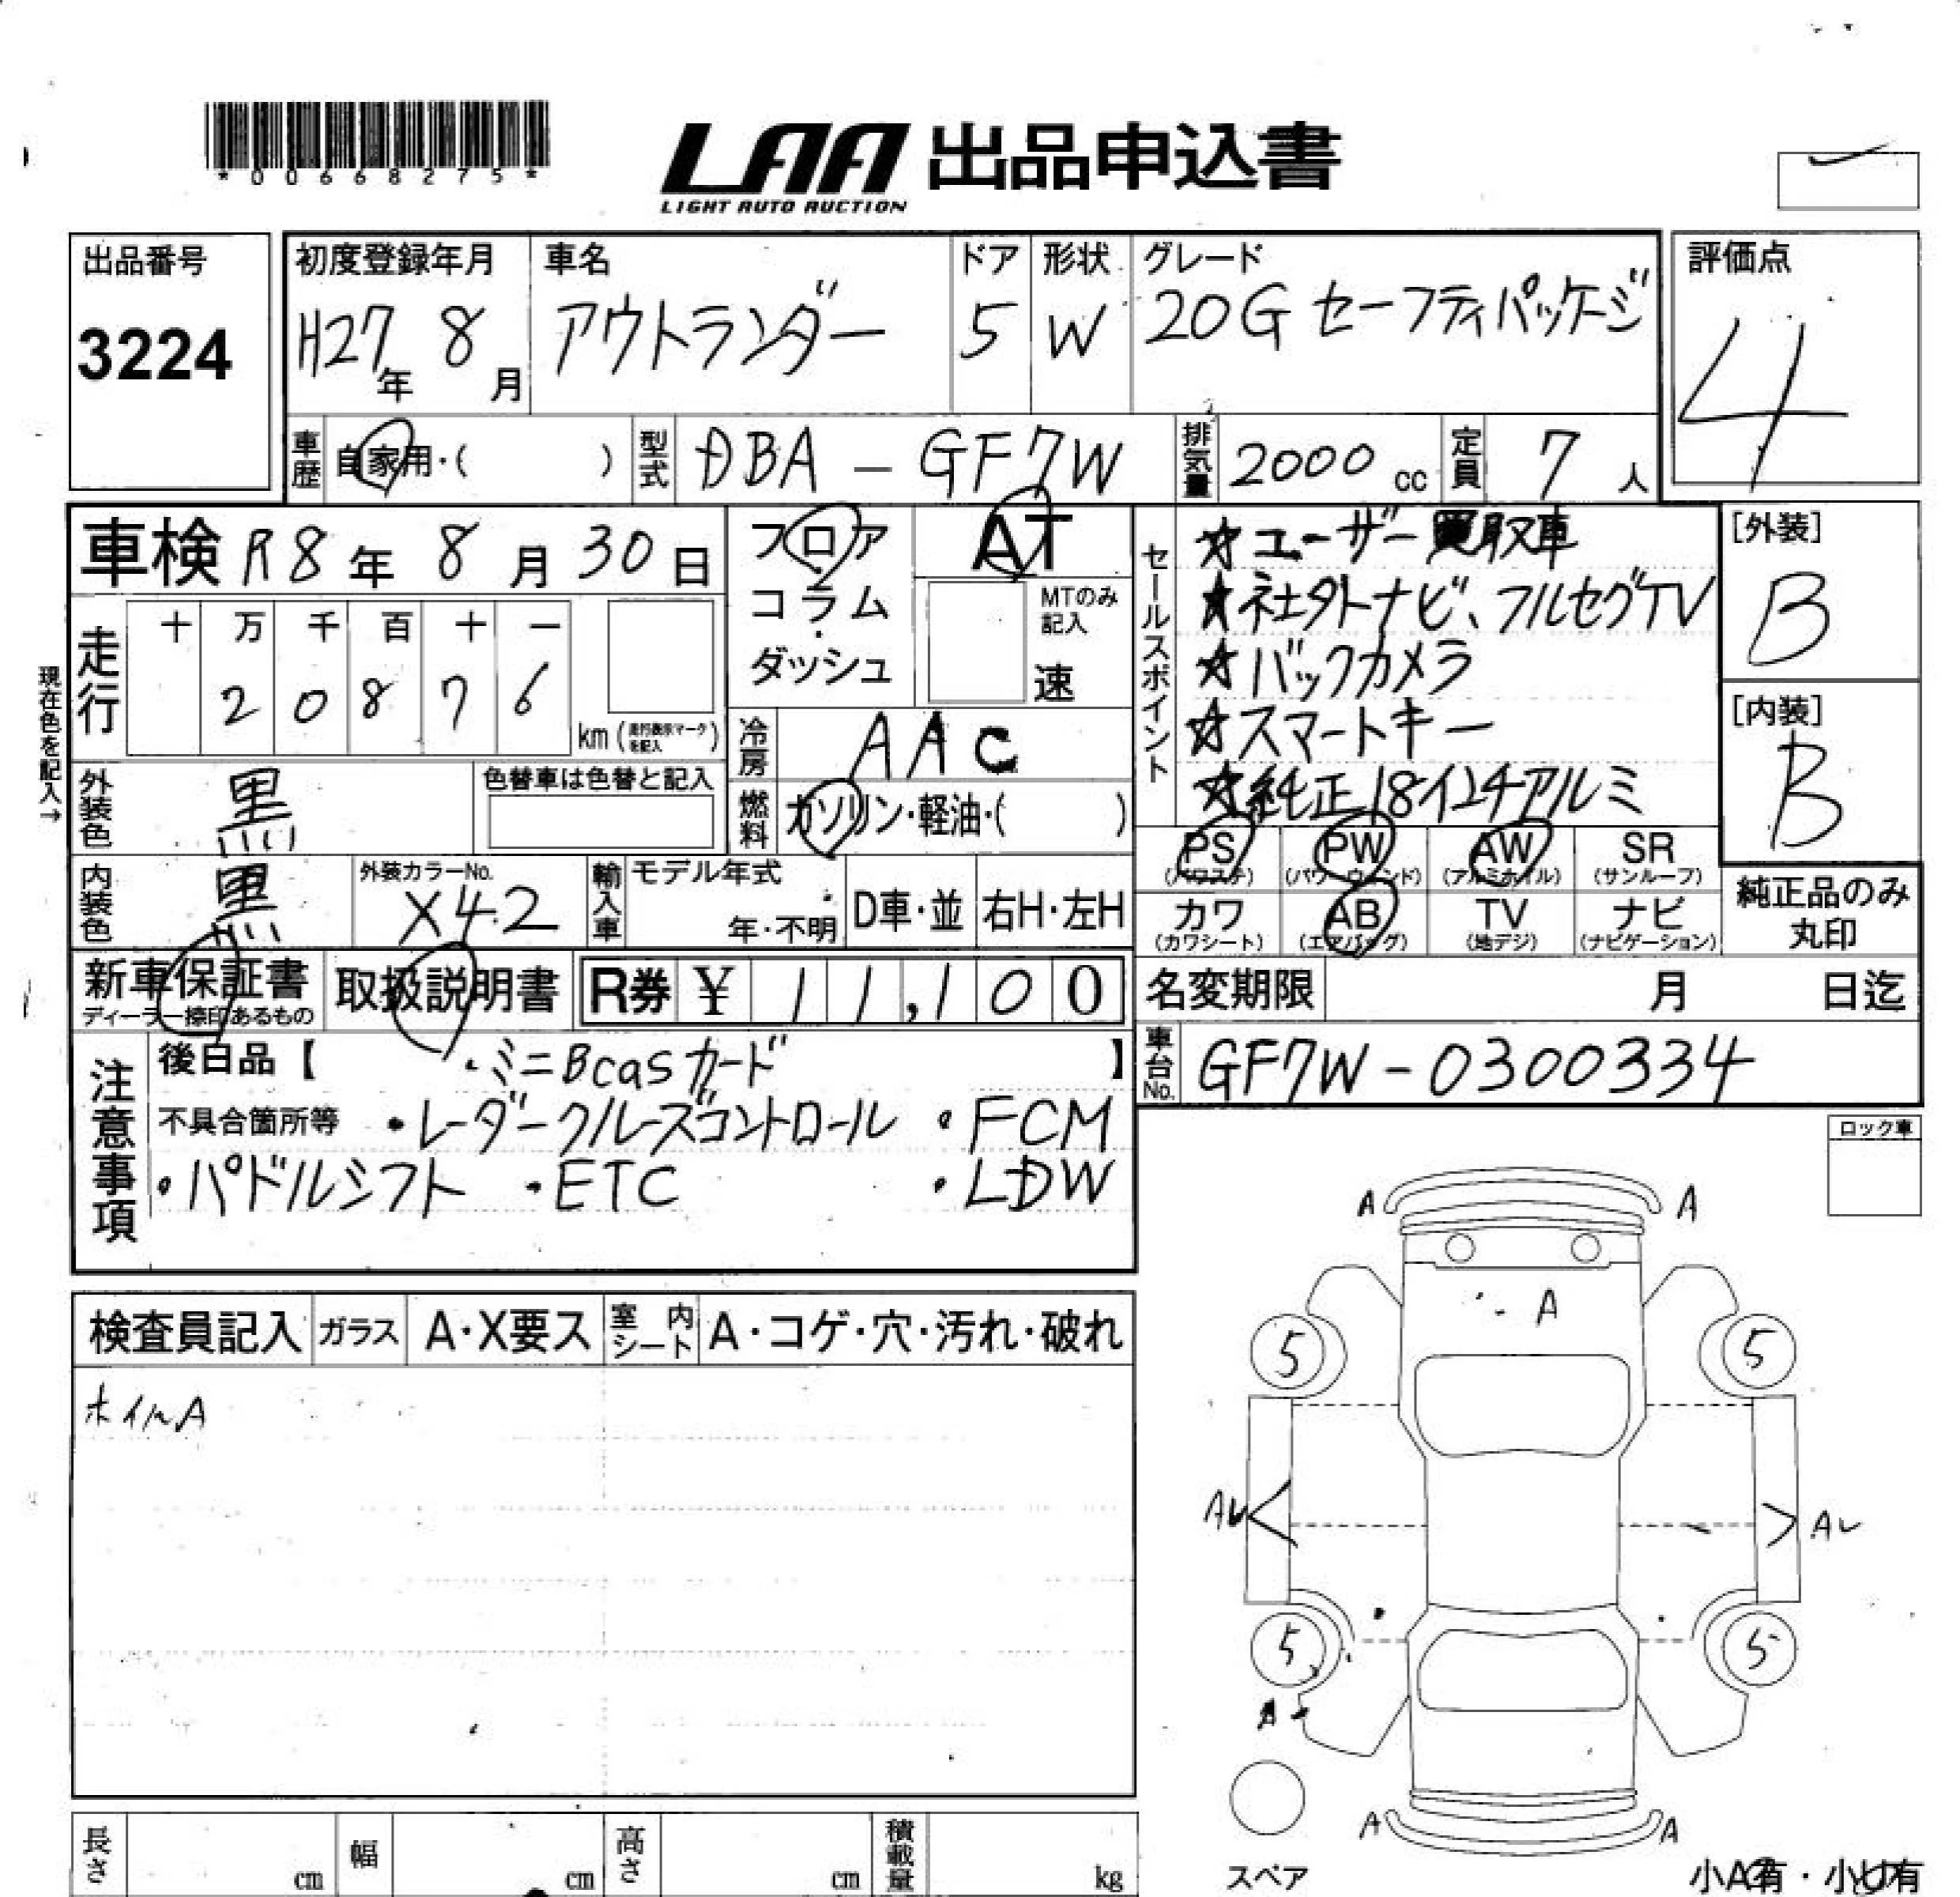 *00668275*
LAA 出品申込書
LIGHT AUTO AUCTION
出品番号 3224
初度登録年月 H27年 8月
車名 アウトランダー
ドア 5
形状 W
グレード 20G セーフティパッケージ
評価点 4
車歴 自家用・( )
型式 DBA-GF7W
排気量 2000 cc
定員 7 人
車検 R8年 8月 30日
フロア・コラム・ダッシュ
AT
MTのみ記入
速
セールスポイント
☆ユーザー買取車
☆社外ナビ、フルセグTV
☆バックカメラ
☆スマートキー
☆純正18インチアルミ
[外装] B
[内装] B
現在色を記入→
走行 十 万 千 百 十 一
2 0 8 7 6 km (走行表示マークを記入)
冷房 AAC
燃料 ガソリン・軽油・( )
外装色 黒
色替車は色替と記入
内装色 黒
外装カラーNo. X42
輸入車 モデル年式 年・不明 D車・並 右H・左H
PS (パワステ) PW (パワーウィンド) AW (アルミホイル) SR (サンルーフ)
カワ (カワシート) AB (エアバッグ) TV (地デジ) ナビ (ナビゲーション)
純正品のみ丸印
新車保証書 ディーラー捺印あるもの
取扱説明書
R券 ¥ 11,100
名変期限 月 日迄
車台No. GF7W-0300334
注意事項
後日品【 ・ミニBcasカード 】
不具合箇所等 ・レーダークルーズコントロール ・FCM
・パドルシフト ・ETC ・LDW
ロック車
検査員記入 ガラス A・X要ス 室内シート A・コゲ・穴・汚れ・破れ
ホイルA
A A
A
5 5
A A
5 5
A A
スペア
小A有・小U有
長さ cm 幅 cm 高さ cm 積載量 kg